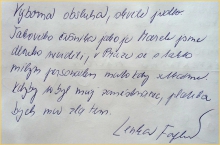 Výborná obsluha, skvělé jídlo
Takového číšníka jako je Marek jsme
dlouho neviděli, v Praze se s takto
milým personálem málokdy setkáme.
Kdyby to byl můj zaměstnanec, plakala
bych mu zlatem.